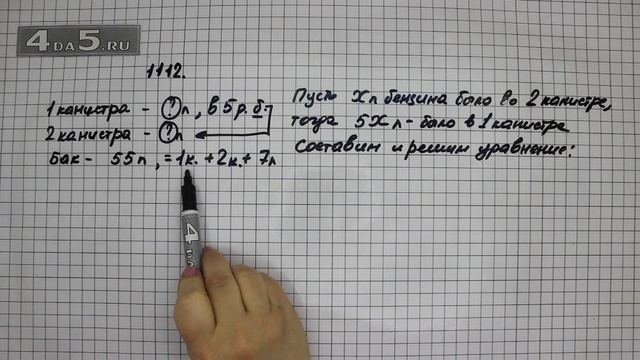 4DA5.RU
1112.
1 канистра - ? л, в 5 р. б
2 канистра - ? л
Бак - 55 л, = 1к. + 2к. + 7л
Пусть X л бензина было во 2 канистре,
тогда 5X л - было в 1 канистре
Составим и решим уравнение:
4
DA